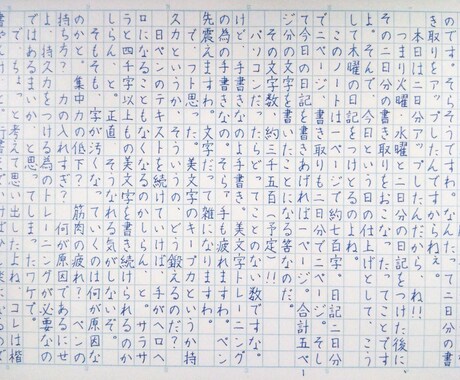 き取りをアップしたんですわ。なんたって
本日は二日分アップしたんだから、ねぇ。
つまり火曜、水曜と二日分の日記をつけた後に
その二日分の書き取りをおこなった、ってことです
よ。そんで、今日という一日の仕上げとして、こう
して木曜の日記を記してるのよね。
このノートは一ページで約七百字。日記二日分
で二ページ、書き取りも二日分で二ページ。そし
て今日の日記を書きあげれば一ページ。合計五ペー
ジ分の文字を書いたことになる筈なのだ。
その文字数、約三千五百（予定）!!
パソコンだったらどってことない数ですな。
けど、手書きなのよ手書き。美文字トレーニング
の為の手書きなの。そらァ手も疲れますわ。ペン
先震えますわ。文字だって雑になりますわ。
で、フト思った。美文字のキープ力というか持
スカというか、そういうの、どう鍛えるのだ？
日ペンのテキストを続けていけば、手がヘロヘ
ロになることもなくなるのかしらん、と。サラサ
ラと四千字以上もの美文字を書き続けられるのか
しらん、と。正直、そうなれる気がしない。
そもそも、字が汚くなっていくのは何が原因な
のかと。集中力の低下？筋肉の疲れ？ペンの
持ち方？力の入れすぎ？何が原因であるにせ
よ、力をつける為のトレーニングが必要なの
ではあるまいか、と思ってしまったワケで。
考えて思い出した。コレは楷
1